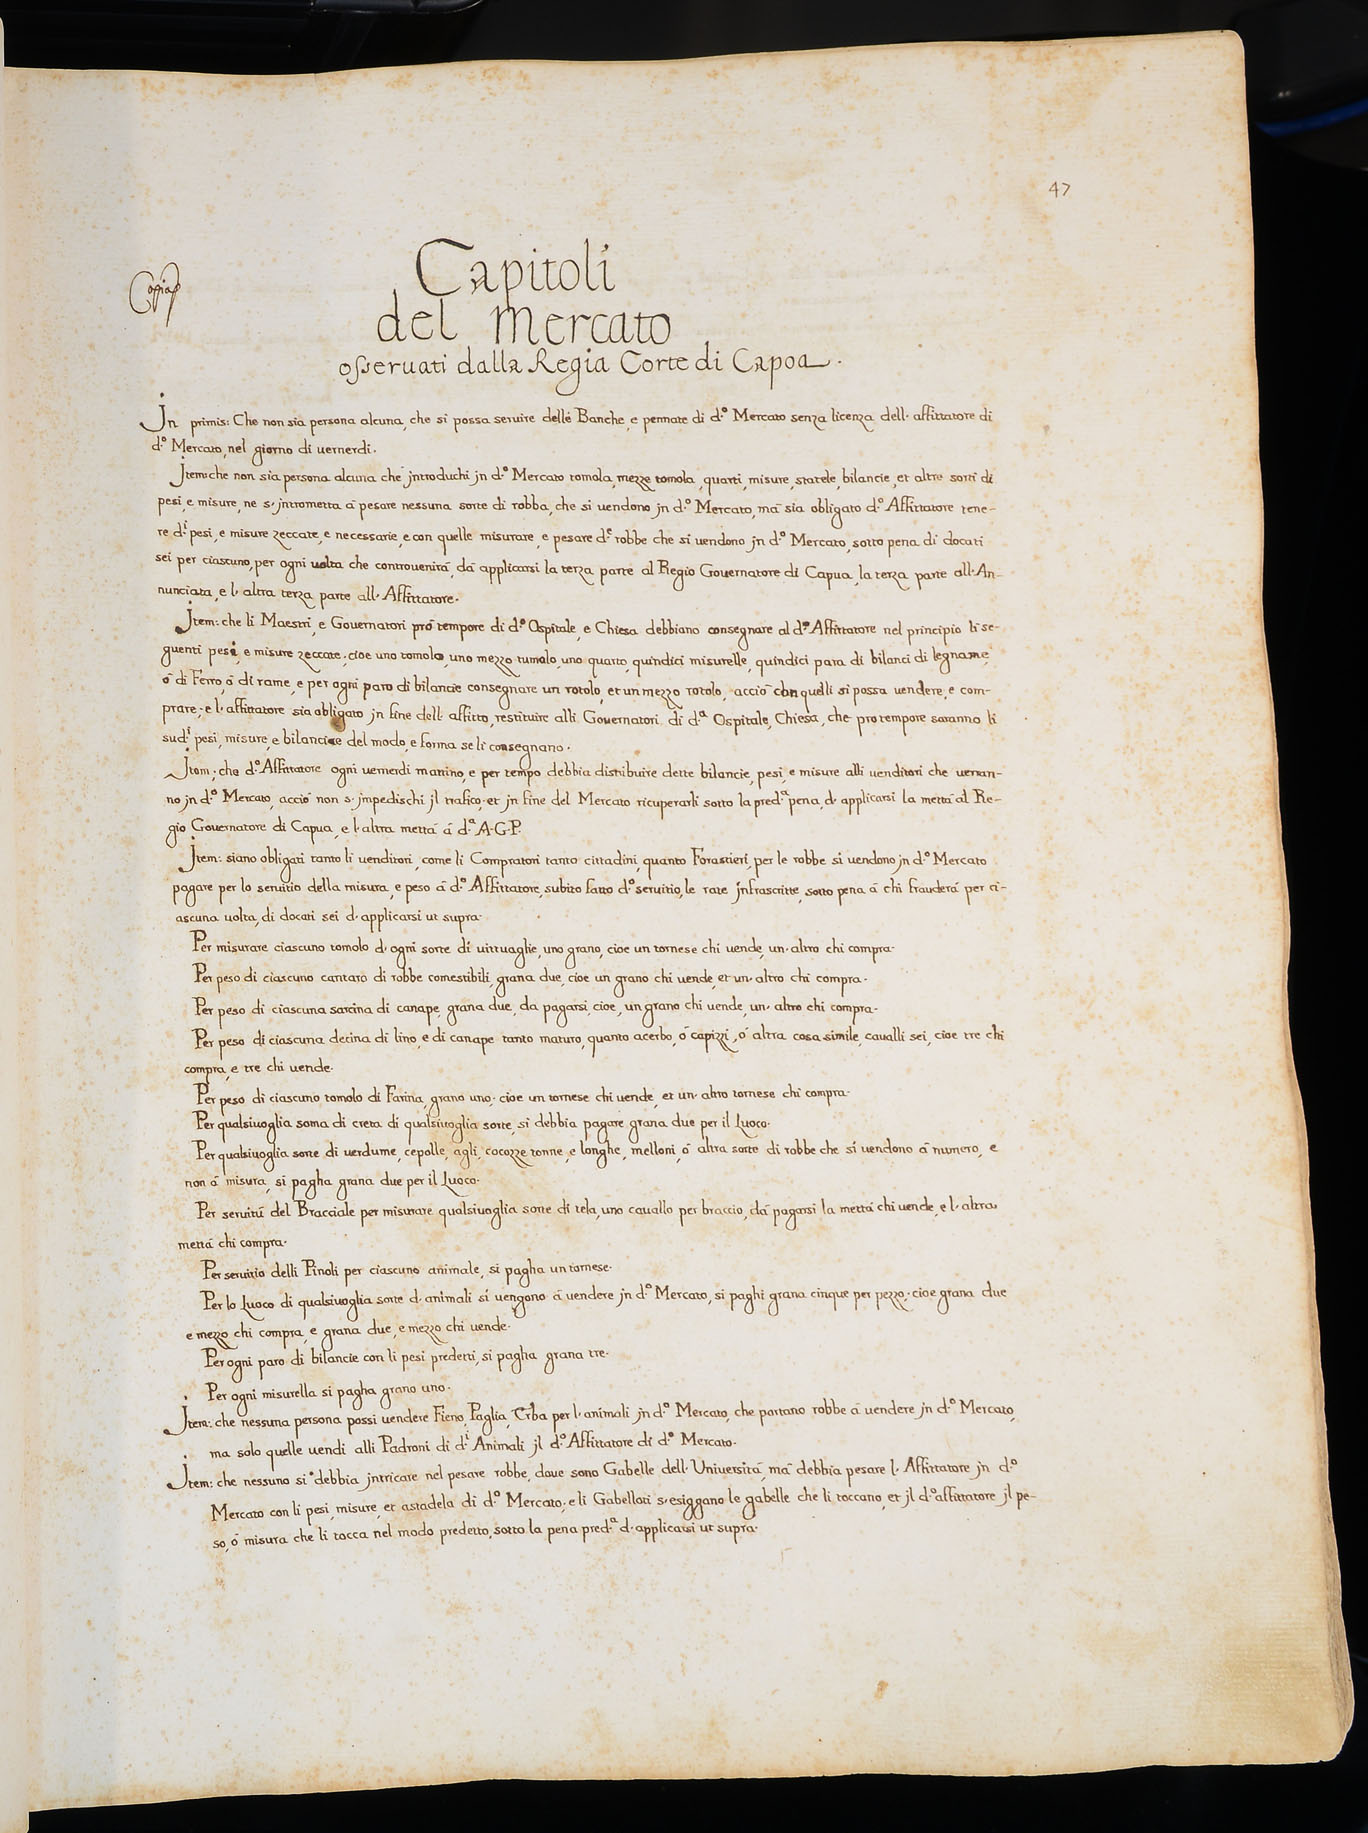 47
Copia
Capitoli
del Mercato
osseruati dalla Regia Corte di Capoa.
Jn primis: Che non sia persona alcuna, che si possa seruire delle Banche, e pennate di d.º Mercato senza licenza dell' affittatore di
d.º Mercato, nel giorno di uernerdi.
Jtem: che non sia persona alcuna che introduchi jn d.º Mercato tomola, mezze tomola, quarti, misure, statele, bilancie, et altre sorti di
pesi, e misure, ne s' jntrometta à pesare nessuna sorte di robba, che si uendono jn d.º Mercato, mà sia obligato d.º Affittatore tene-
re d.i pesi, e misure zeccate, e necessarie, e con quelle misurare, e pesare d.e robbe che si uendono jn d.º Mercato, sotto pena di docati
sei per ciascuno, per ogni uolta che controuenirà, dà applicarsi la terza parte al Regio Gouernatore di Capua, la terza parte all' An-
nunciata, e l' altra terza parte all' Affittatore.
Jtem: che li Maestri, e Gouernatori prò tempore di d.º Ospitale, e Chiesa debbiano consegnare al d.º Affittatore nel principio li se-
guenti pesi, e misure zeccate; cioe uno tomolo, uno mezzo tumolo, uno quarto, quindici misurelle, quindici para di bilanci di legname,
ò di Ferro, ò di rame, e per ogni paro di bilancie consegnare un rotolo, et un mezzo rotolo, acciò con quelli si possa uendere, e com-
prare; e l' affittatore sia obligato jn fine dell' affitto, restituire alli Gouernatori di d.a Ospitale, Chiesa, che pro tempore saranno li
sud.i pesi, misure, e bilancie del modo, e forma se li consegnano.
Jtem; che d.º Affittatore ogni uernerdi matino, e per tempo debbia distribuire dette bilancie, pesi, e misure alli uenditori che uerran-
no jn d.º Mercato, acciò non s' jmpedischi jl trafico; et jn fine del Mercato ricuperarli sotto la pred.a pena, d' applicarsi la mettà al Re-
gio Gouernatore di Capua, e l' altra mettà à d.a A.G.P.
Jtem: siano obligati tanto li uenditori, come li Compratori tanto cittadini, quanto Forastieri, per le robbe si uendono jn d.º Mercato
pagare per lo seruitio della misura, e peso à d.º Affittatore, subito fatto d.º seruitio, le rate jnfrascritte, sotto pena à chi frauderà per ci-
ascuna uolta, di docati sei d' applicarsi ut supra.
Per misurare ciascuno tomolo d' ogni sorte di uittuaglie, uno grano, cioe un tornese chi uende, un' altro chi compra.
Per peso di ciascuno cantaro di robbe comestibili, grana due, cioe un grano chi uende, et un' altro chi compra.
Per peso di ciascuna sarcina di canape, grana due, da pagarsi, cioe, un grano chi uende, un' altro chi compra.
Per peso di ciascuna decina di lino, e di canape tanto maturo, quanto acerbo, ò capizzi, ò altra cosa simile, caualli sei, cioe tre chi
compra, e tre chi uende.
Per peso di ciascuno tomolo di Farina, grano uno; cioe un tornese chi uende, et un' altro tornese chi compra.
Per qualsiuoglia soma di creta di qualsiuoglia sorte, si debbia pagare grana due per il Luoco.
Per qualsiuoglia sorte di uerdume, cepolle, agli, cocozze tonne, e longhe, melloni, ò altra sorte di robbe che si uendono à numero, e
non à misura, si pagha grana due per il Luoco.
Per seruitù del Bracciale per misurare qualsiuoglia sorte di tela, uno cauallo per braccio, dà pagarsi la mettà chi uende, e l' altra
mettà chi compra.
Per seruitio delli Pinoli per ciascuno animale, si pagha un tornese.
Per lo Luoco di qualsiuoglia sorte d' animali si uengono à uendere jn d.º Mercato, si paghi grana cinque per pezzo; cioe grana due
e mezzo chi compra, e grana due, e mezzo chi uende.
Per ogni paro di bilancie con li pesi predetti, si pagha grana tre.
Per ogni misurella si pagha grano uno.
Jtem: che nessuna persona possi uendere Fieno, Paglia, Erba per l' animali jn d.º Mercato, che portano robbe à uendere jn d.º Mercato,
ma solo quelle uendi alli Padroni di d.i Animali jl d.º Affittatore di d.º Mercato.
Jtem: che nessuno si debbia jntricare nel pesare robbe, doue sono Gabelle dell' Università, mà debbia pesare l' Affittatore jn d.º
Mercato con li pesi, misure, et astadela di d.º Mercato; e li Gabelloti s' esiggano le gabelle che li toccano, et jl d.º affittatore jl pe-
so, ò misura che li tocca nel modo predetto, sotto la pena pred.a d' applicarsi ut supra.